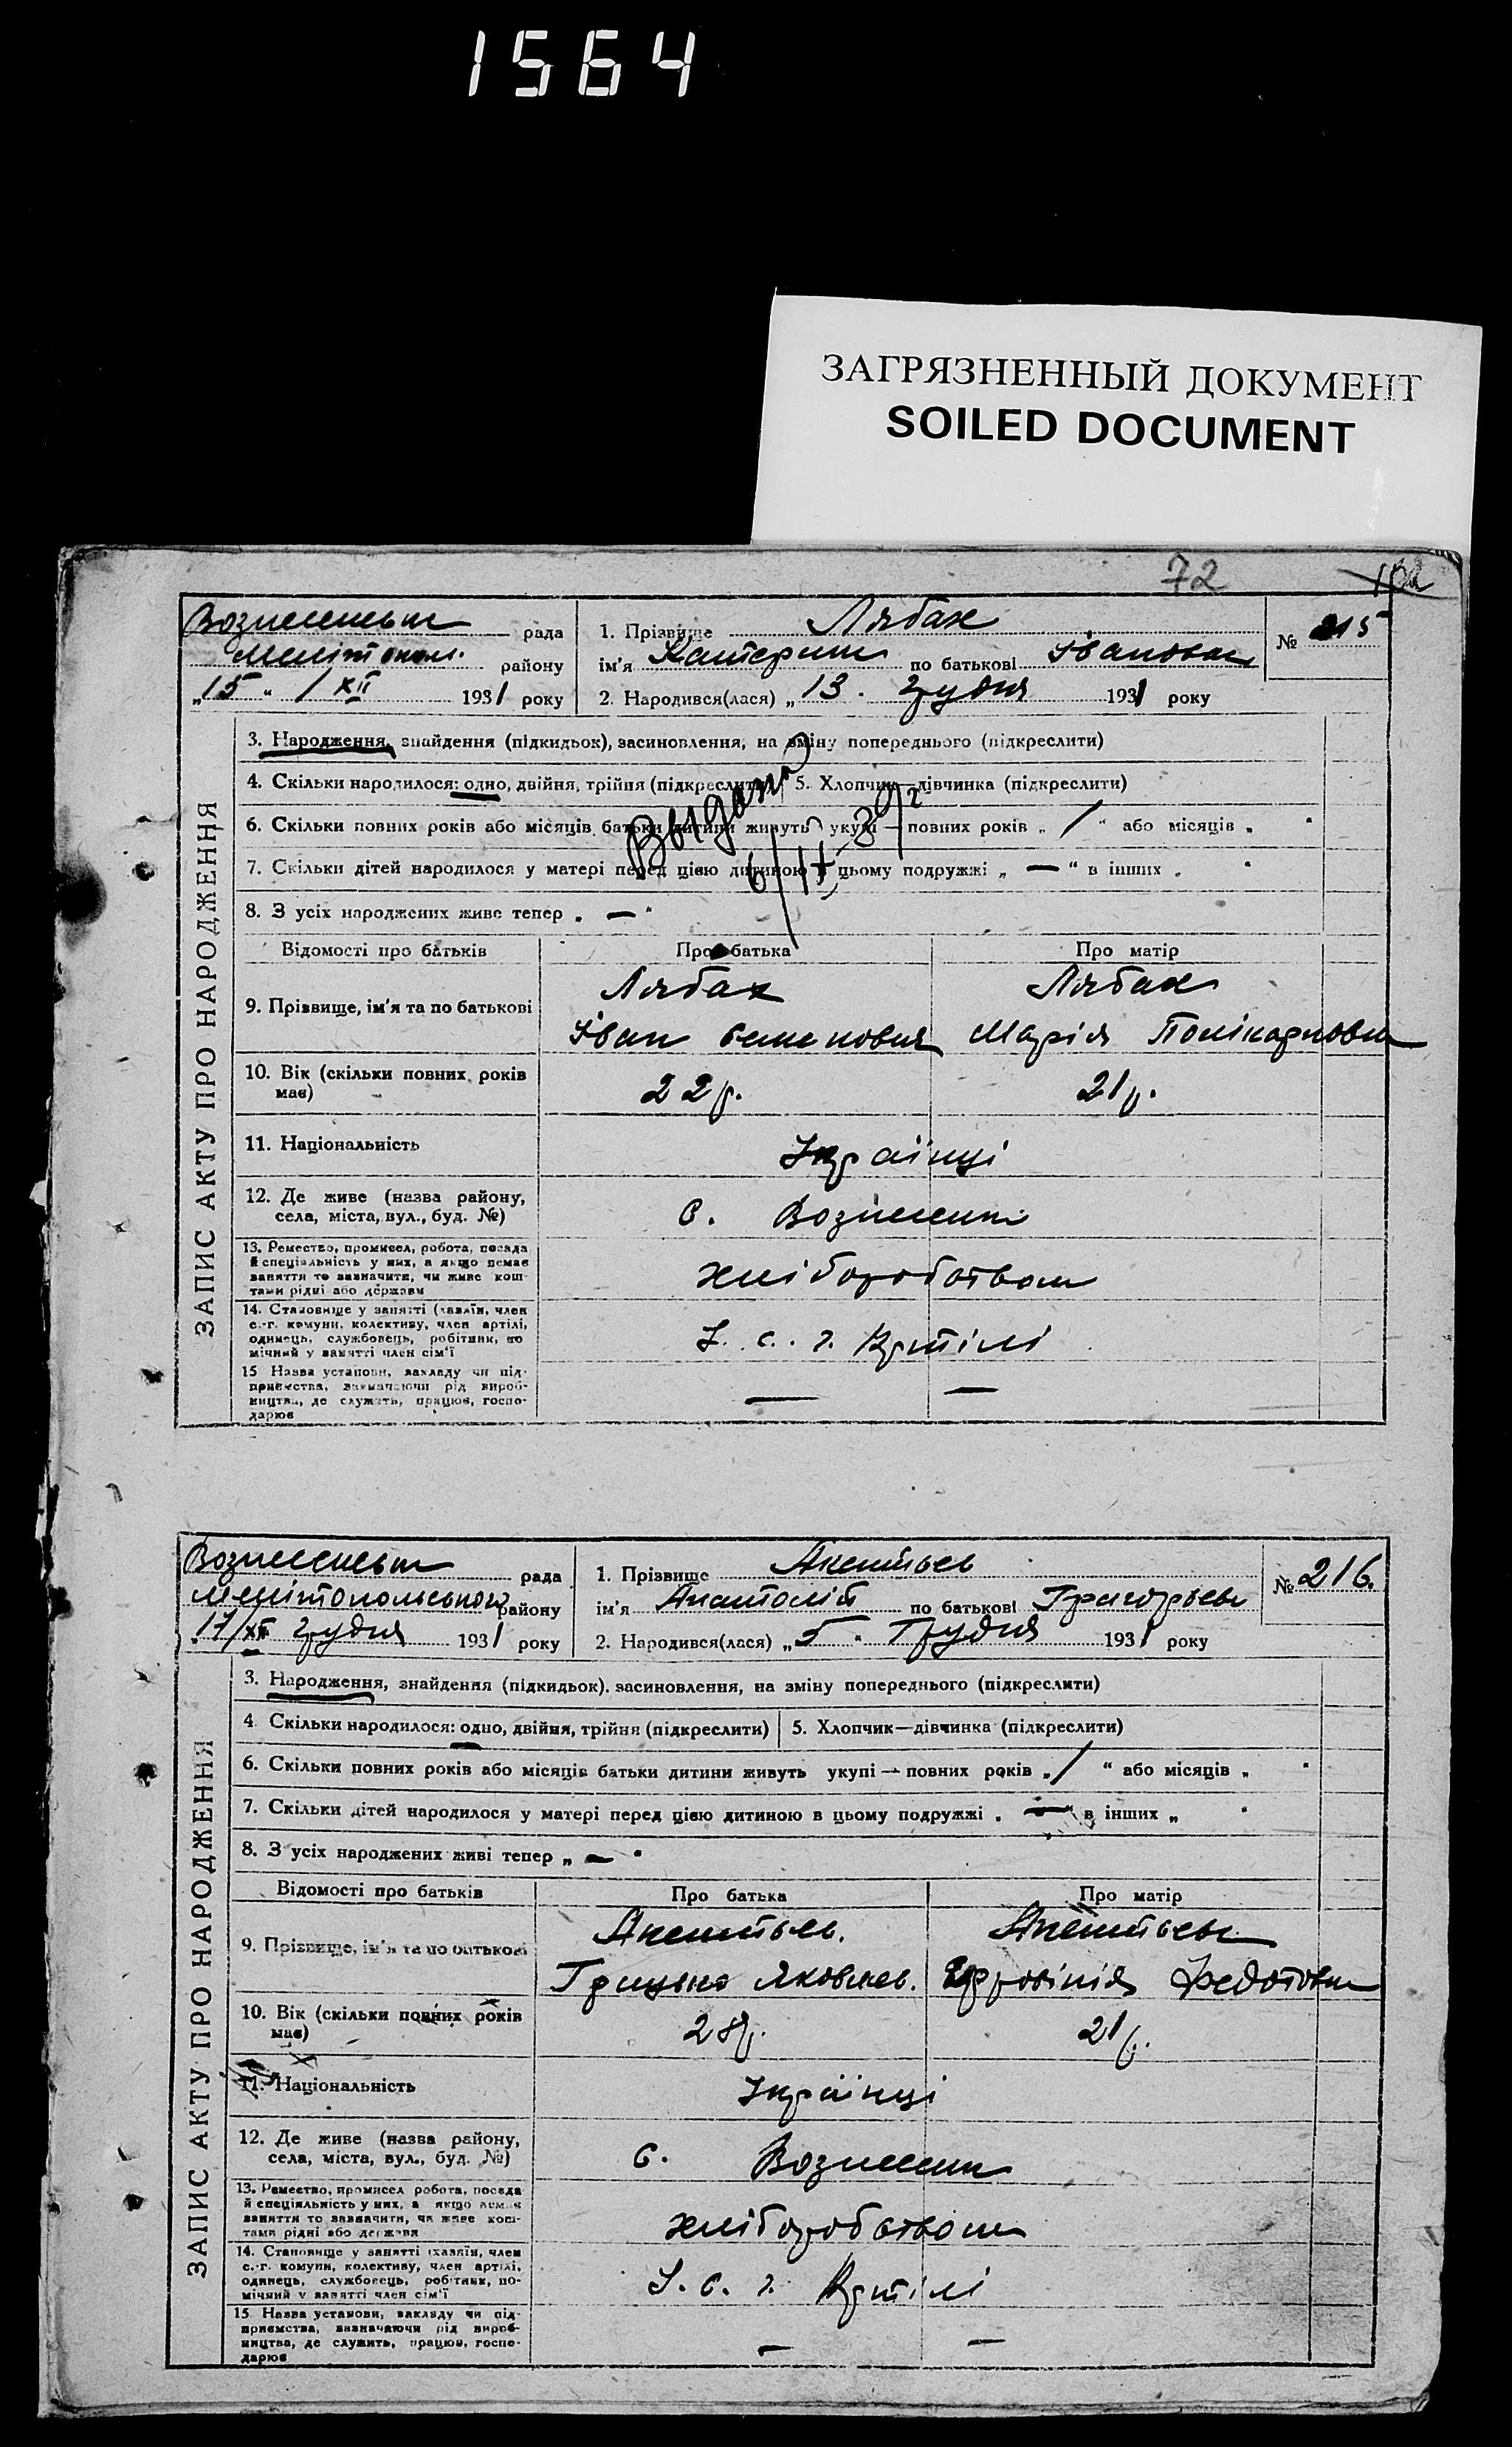 1564
ЗАГРЯЗНЕННЫЙ ДОКУМЕНТ
SOILED DOCUMENT
72
ЗАПИС АКТУ ПРО НАРОДЖЕННЯ
рада
Мелітопол. району
„15“ / XII 1931 року
1. Прізвище Лябах
ім'я Катерина по батькові Івановна
№ 215
2. Народився(лася) „13. Грудня 1931 року
3. Народження, знайдення (підкидьок), засиновлення, на зміну попереднього (підкреслити)
4. Скільки народилося: одно, двійня, трійня (підкреслити) 5. Хлопчик—дівчинка (підкреслити)
6. Скільки повних років або місяців батьки дитини живуть укупі — повних років „ / “ або місяців „ “
7. Скільки дітей народилося у матері перед цією дитиною в цьому подружжі „ — “ в інших „ “
8. З усіх народжених живе тепер „ — “
Відомості про батьків Про батька Про матір
9. Прізвище, ім'я та по батькові
Лябах Лябах
Іван Семенович Марія Полікарповна
10. Вік (скільки повних років має) 22 р. 21 р.
11. Національність Українці
12. Де живе (назва району,
села, міста, вул., буд. №)
с.
13. Ремество, промисел, робота, посада
й спеціяльність у них, а якщо немає
заняття то зазначити, чи живе кош-
тами рідні або держави
хліборобством
14. Становище у занятті (хазяїн, член
с.-г. комуни, колективу, член артілі,
одинець, службовець, робітник, по
мічний у занятті член сім'ї
с. г. Артілі
15 Назва установи, закладу чи під-
приємства, зазначаючи рід вироб-
ництва, де служить, працює, госпо-
дарює
— —
ЗАПИС АКТУ ПРО НАРОДЖЕННЯ
рада
Мелітопольського району
17/XII Грудня 1931 року
1. Прізвище Акентьев
ім'я Анатолій по батькові Григорьев
№ 216.
2. Народився(лася) „5“ Грудня 1931 року
3. Народження, знайдення (підкидьок), засиновлення, на зміну попереднього (підкреслити)
4 Скільки народилося: одно, двійня, трійня (підкреслити) 5. Хлопчик—дівчинка (підкреслити)
6. Скільки повних років або місяців батьки дитини живуть укупі — повних років „ / “ або місяців „ “
7. Скільки дітей народилося у матері перед цією дитиною в цьому подружжі „ — “ в інших „ “
8. З усіх народжених живі тепер „ — “
Відомості про батьків Про батька Про матір
9. Прізвище, ім'я та по батькові
Акентьев. Акентьева
Грицько Яковлев. Федотовна
10. Вік (скільки повних років має) 21 р.
11. Національність Українці
12. Де живе (назва району,
села, міста, вул., буд. №)
с.
13. Ремество, промисел робота, посада
й спеціяльність у них, а якщо немає
заняття то зазначити, чи живе кош-
тами рідні або держави
хліборобством
14. Становище у занятті (хазяїн, член
с.-г. комуни, колективу, член артілі,
одинець, службовець, робітник, по-
мічний у занятті член сім'ї
с. г. Артілі
15 Назва установи, закладу чи під-
приємства, зазначаючи рід вироб-
ництва, де служить, працює, госпо-
дарює
— —